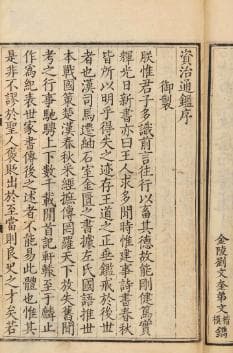 資治通鑑序
御製
朕惟君子多識前言往行以畜其德故能剛健篤實
輝光日新書亦曰王人求多聞時惟建事詩書春秋
皆所以明乎得失之迹存王道之正垂鑑戒於後世
者也漢司馬遷紬石室金匱之書據左氏國語推世
本戰國策楚漢春秋采經摭傳罔羅天下放失舊聞
考之行事馳騁上下數千載間首記軒轅至于麟止
作為紀表世家書傳後之述者不能易此體也惟其
是非不謬於聖人褒貶出於至當則良史之才矣若
金陵劉文奎弟文